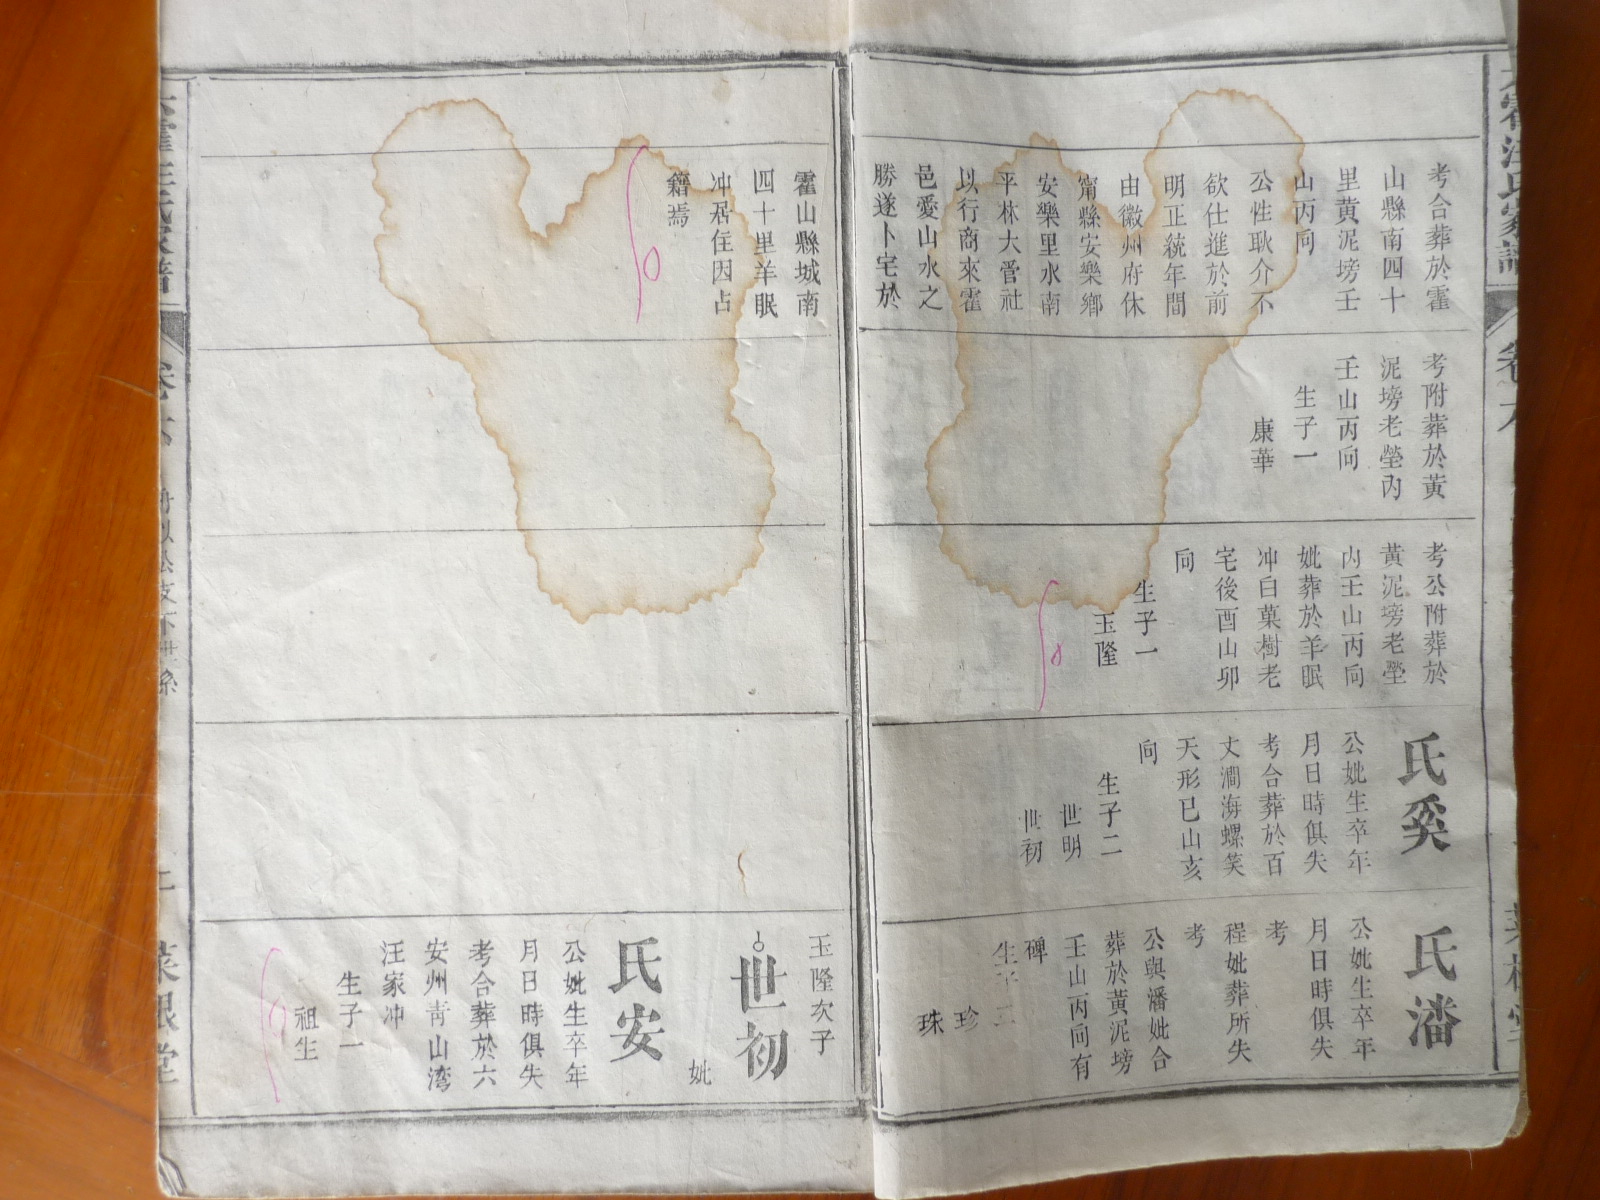 考合葬於霍
山縣南四十
里黄泥塝壬
山丙向
公性耿介不
欲仕進於前
明正統年間
由徽州府休
甯縣安樂鄉
安樂里水南
平林大啻社
以行商來霍
邑愛山水之
勝遂卜宅於
考附葬於黄
泥塝老塋内
壬山丙向
生子一
康華
考公附葬於
黄泥塝老塋
内壬山丙向
妣葬於羊眠
冲白菓樹老
宅後酉山卯
向
生子一
玉隆
氏奚
公妣生卒年
月日時俱失
考合葬於百
丈澗海螺笑
天形巳山亥
向
生子二
世明
世初
氏潘
公妣生卒年
月日時俱失
考
程妣葬所失
考
公與潘妣合
葬於黄泥塝
壬山丙向有
碑
生子二
珍
珠
霍山縣城南
四十里羊眠
冲居住因占
籍焉
玉隆次子
世初
妣
氏安
公妣生卒年
月日時俱失
考合葬於六
安州青山湾
汪家冲
生子一
祖生